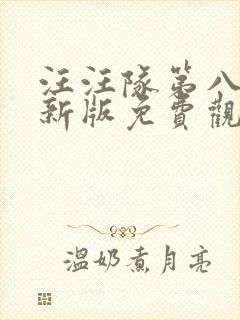 汪汪隊第八
新版免費觀
溫奶煮月亮